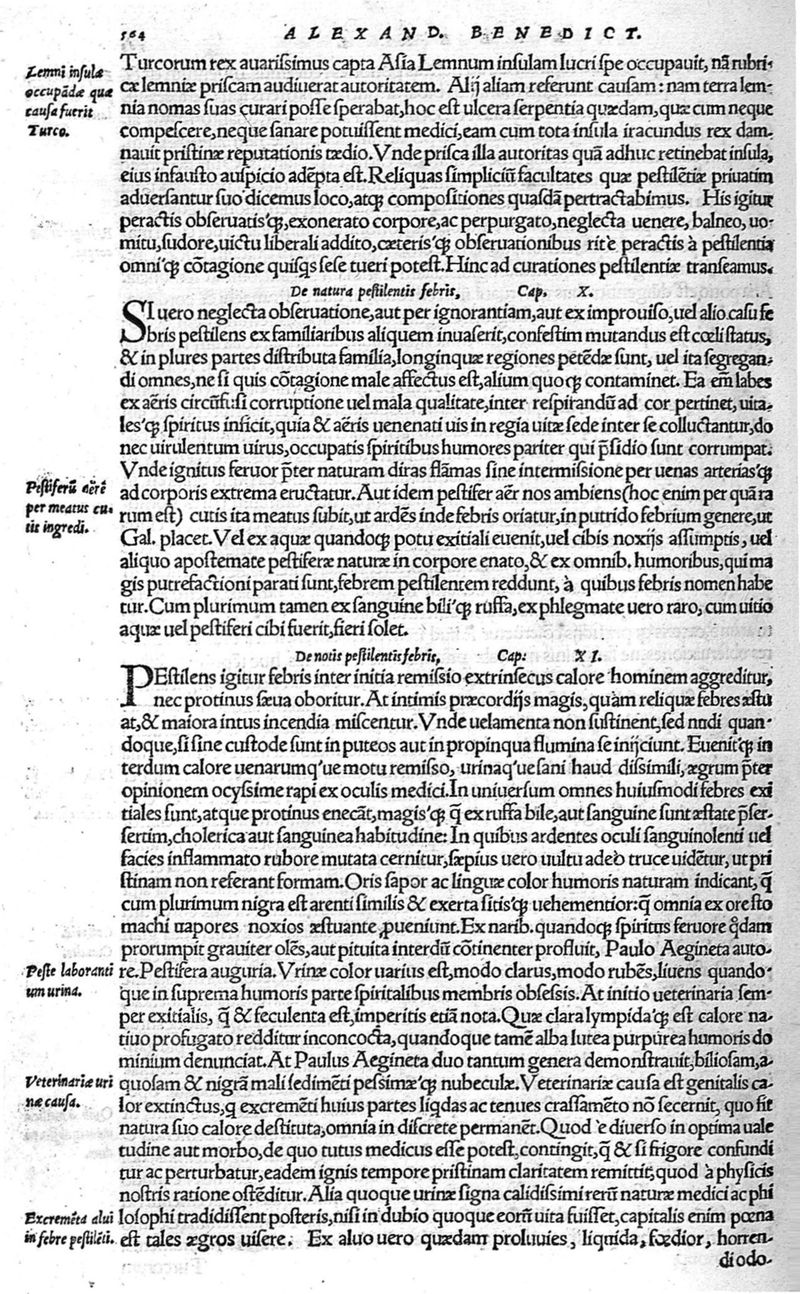 564
ALEXAND. BENEDICT.
Lemni insulæ
occupādæ quæ
causa fuerit
Turco.
Turcorum rex auarissimus capta Asia Lemnum insulam lucri spe occupauit, nā rubri-
cæ lemniæ priscam audiuerat autoritatem. Alij aliam referunt causam: nam terra lem-
nia nomas suas curari posse sperabat, hoc est ulcera serpentia quædam, quæ cum neque
compescere, neque sanare potuissent medici, eam cum tota insula iracundus rex dam-
nauit pristinæ reputationis tædio. Vnde prisca illa autoritas quā adhuc retinebat insula,
eius infausto auspicio adēpta est. Reliquas simpliciū facultates quæ pestilētiæ priuatim
aduersantur suo dicemus loco, atqꝫ compositiones quasdā pertractabimus. His igitur
peractis obseruatis'qꝫ, exonerato corpore, ac perpurgato, neglecta uenere, balneo, uo-
mitu, sudore, uictu liberali addito, cæteris'qꝫ obseruationibus rit'e peractis à pestilentia
omni'qꝫ cōtagione quisqs sese tueri potest. Hinc ad curationes pestilentiæ transeamus.
De natura pestilentis febris, Cap. X.
SI uero neglecta obseruatione, aut per ignorantiam, aut ex improuiso, uel alio casu fe
bris pestilens ex familiaribus aliquem inuaserit, confestim mutandus est cœli status,
& in plures partes distributa familia, longinquæ regiones petēdæ sunt, uel ita segregan-
di omnes, ne si quis cōtagione male affectus est, alium quoqꝫ contaminet. Ea em̄ labes
ex aëris circūfusi corruptione uel mala qualitate, inter respirandū ad cor pertinet, uita-
les'qꝫ spiritus inficit, quia & aëris uenenati uis in regia uitæ sede inter se colluctantur, do
nec uirulentum uirus, occupatis spiritibus humores pariter qui p̄sidio sunt corrumpat.
Vnde ignitus feruor p̄ter naturam diras flāmas sine intermissione per uenas arterias'qꝫ
Pestiferū aërē
per meatus cu-
tis ingredi.
ad corporis extrema eructatur. Aut idem pestifer aër nos ambiens (hoc enim per quā ra
rum est) cutis ita meatus subit, ut ardēs inde febris oriatur, in putrido febrium genere, ut
Gal. placet. Vel ex aquæ quandoqꝫ potu exitiali euenit, uel cibis noxijs assumptis, uel
aliquo apostemate pestiferæ naturæ in corpore enato, & ex omnib. humoribus, qui ma
gis putrefactioni parati sunt, febrem pestilentem reddunt, à quibus febris nomen habe
tur. Cum plurimum tamen ex sanguine bili'qꝫ ruffa, ex phlegmate uero raro, cum uitio
aquæ uel pestiferi cibi fuerit, fieri solet.
De notis pestilentis febris, Cap: XI.
PEstilens igitur febris inter initia remissio extrinsecus calore hominem aggreditur,
nec protinus sæua oboritur. At intimis præcordijs magis, quàm reliquæ febres æstu
at, & maiora intus incendia miscentur. Vnde uelamenta non sustinent, sed nudi quan-
doque, si sine custode sunt in puteos aut in propinqua flumina se inijciunt. Euenit'qꝫ in
terdum calore uenarumq'ue motu remisso, urinaq'ue sani haud dissimili, ægrum p̄ter
opinionem ocyssime rapi ex oculis medici. In uniuersum omnes huiusmodi febres exi
tiales sunt, atque protinus enecāt, magis'qꝫ q̄ ex ruffa bile, aut sanguine sunt æstate p̄ser-
sertim, cholerica aut sanguinea habitudine: In quibus ardentes oculi sanguinolenti uel
facies inflammato rubore mutata cernitur, sæpius uero uultu adeò truce uidētur, ut pri
stinam non referant formam. Oris sapor ac linguæ color humoris naturam indicant, q̄
cum plurimum nigra est arenti similis & exerta sitis'qꝫ uehementior: q̄ omnia ex ore sto
machi uapores noxios æstuante ꝓueniunt. Ex narib. quandoqꝫ spiritus feruore q̇dam
prorumpit grauiter olēs, aut pituita interdū cōtinenter profluit, Paulo Aegineta auto-
Peste laboranti
um urina.
re. Pestifera auguria. Vrinæ color uarius est, modo clarus, modo rubēs, liuens quando-
que in suprema humoris parte spiritalibus membris obsessis. At initio ueterinaria sem-
per exitialis, q̄ & feculenta est, imperitis etiā nota. Quæ clara lympida'qꝫ est calore na-
tiuo profugato redditur inconcocta, quandoque tamē alba lutea purpurea humoris do
minium denunciat. At Paulus Aegineta duo tantum genera demonstrauit, biliosam, a-
Veterinariæ uri
næ causa.
quosam & nigrā mali sedimēti pessimæ'qꝫ nubeculæ. Veterinariæ causa est genitalis ca-
lor extinctus, q excremēti huius partes liqdas ac tenues crassamēto nō secernit, quo fit
natura suo calore destituta, omnia in discrete permanēt. Quod 'e diuerso in optima uale
tudine aut morbo, de quo tutus medicus esse potest, contingit, q̄ & si frigore confundi
tur ac perturbatur, eadem ignis tempore pristinam claritatem remittit, quod à physicis
nostris ratione ostēditur. Alia quoque urinæ signa calidissimi rerū naturæ medici ac phi
Excremēta alui
in febre pestilēti.
losophi tradidissent posteris, nisi in dubio quoque eorū uita fuisset, capitalis enim pœna
est tales ægros uisere. Ex aluo uero quædam proluuies, liquida, fœdior, horren-
di odo-